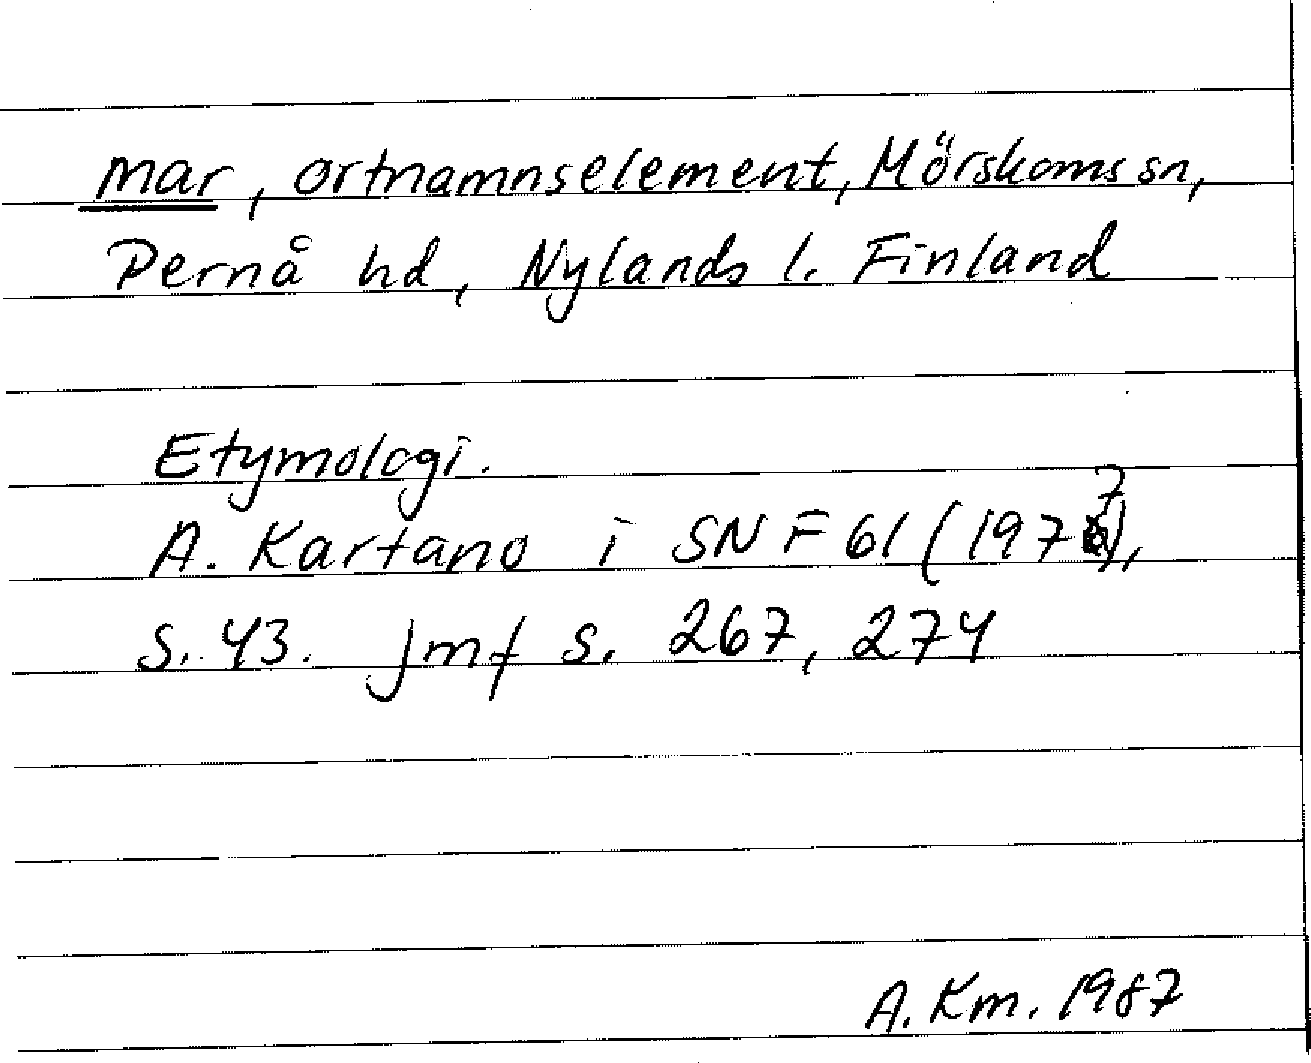 mar, ortnamnselement, Mörskoms sn,
Pernå hd, Nylands l. Finland
Etymologi.
A. Kartano i SNF 61 (1977),
s. 43. jmf s. 267, 274
A. Km. 1987